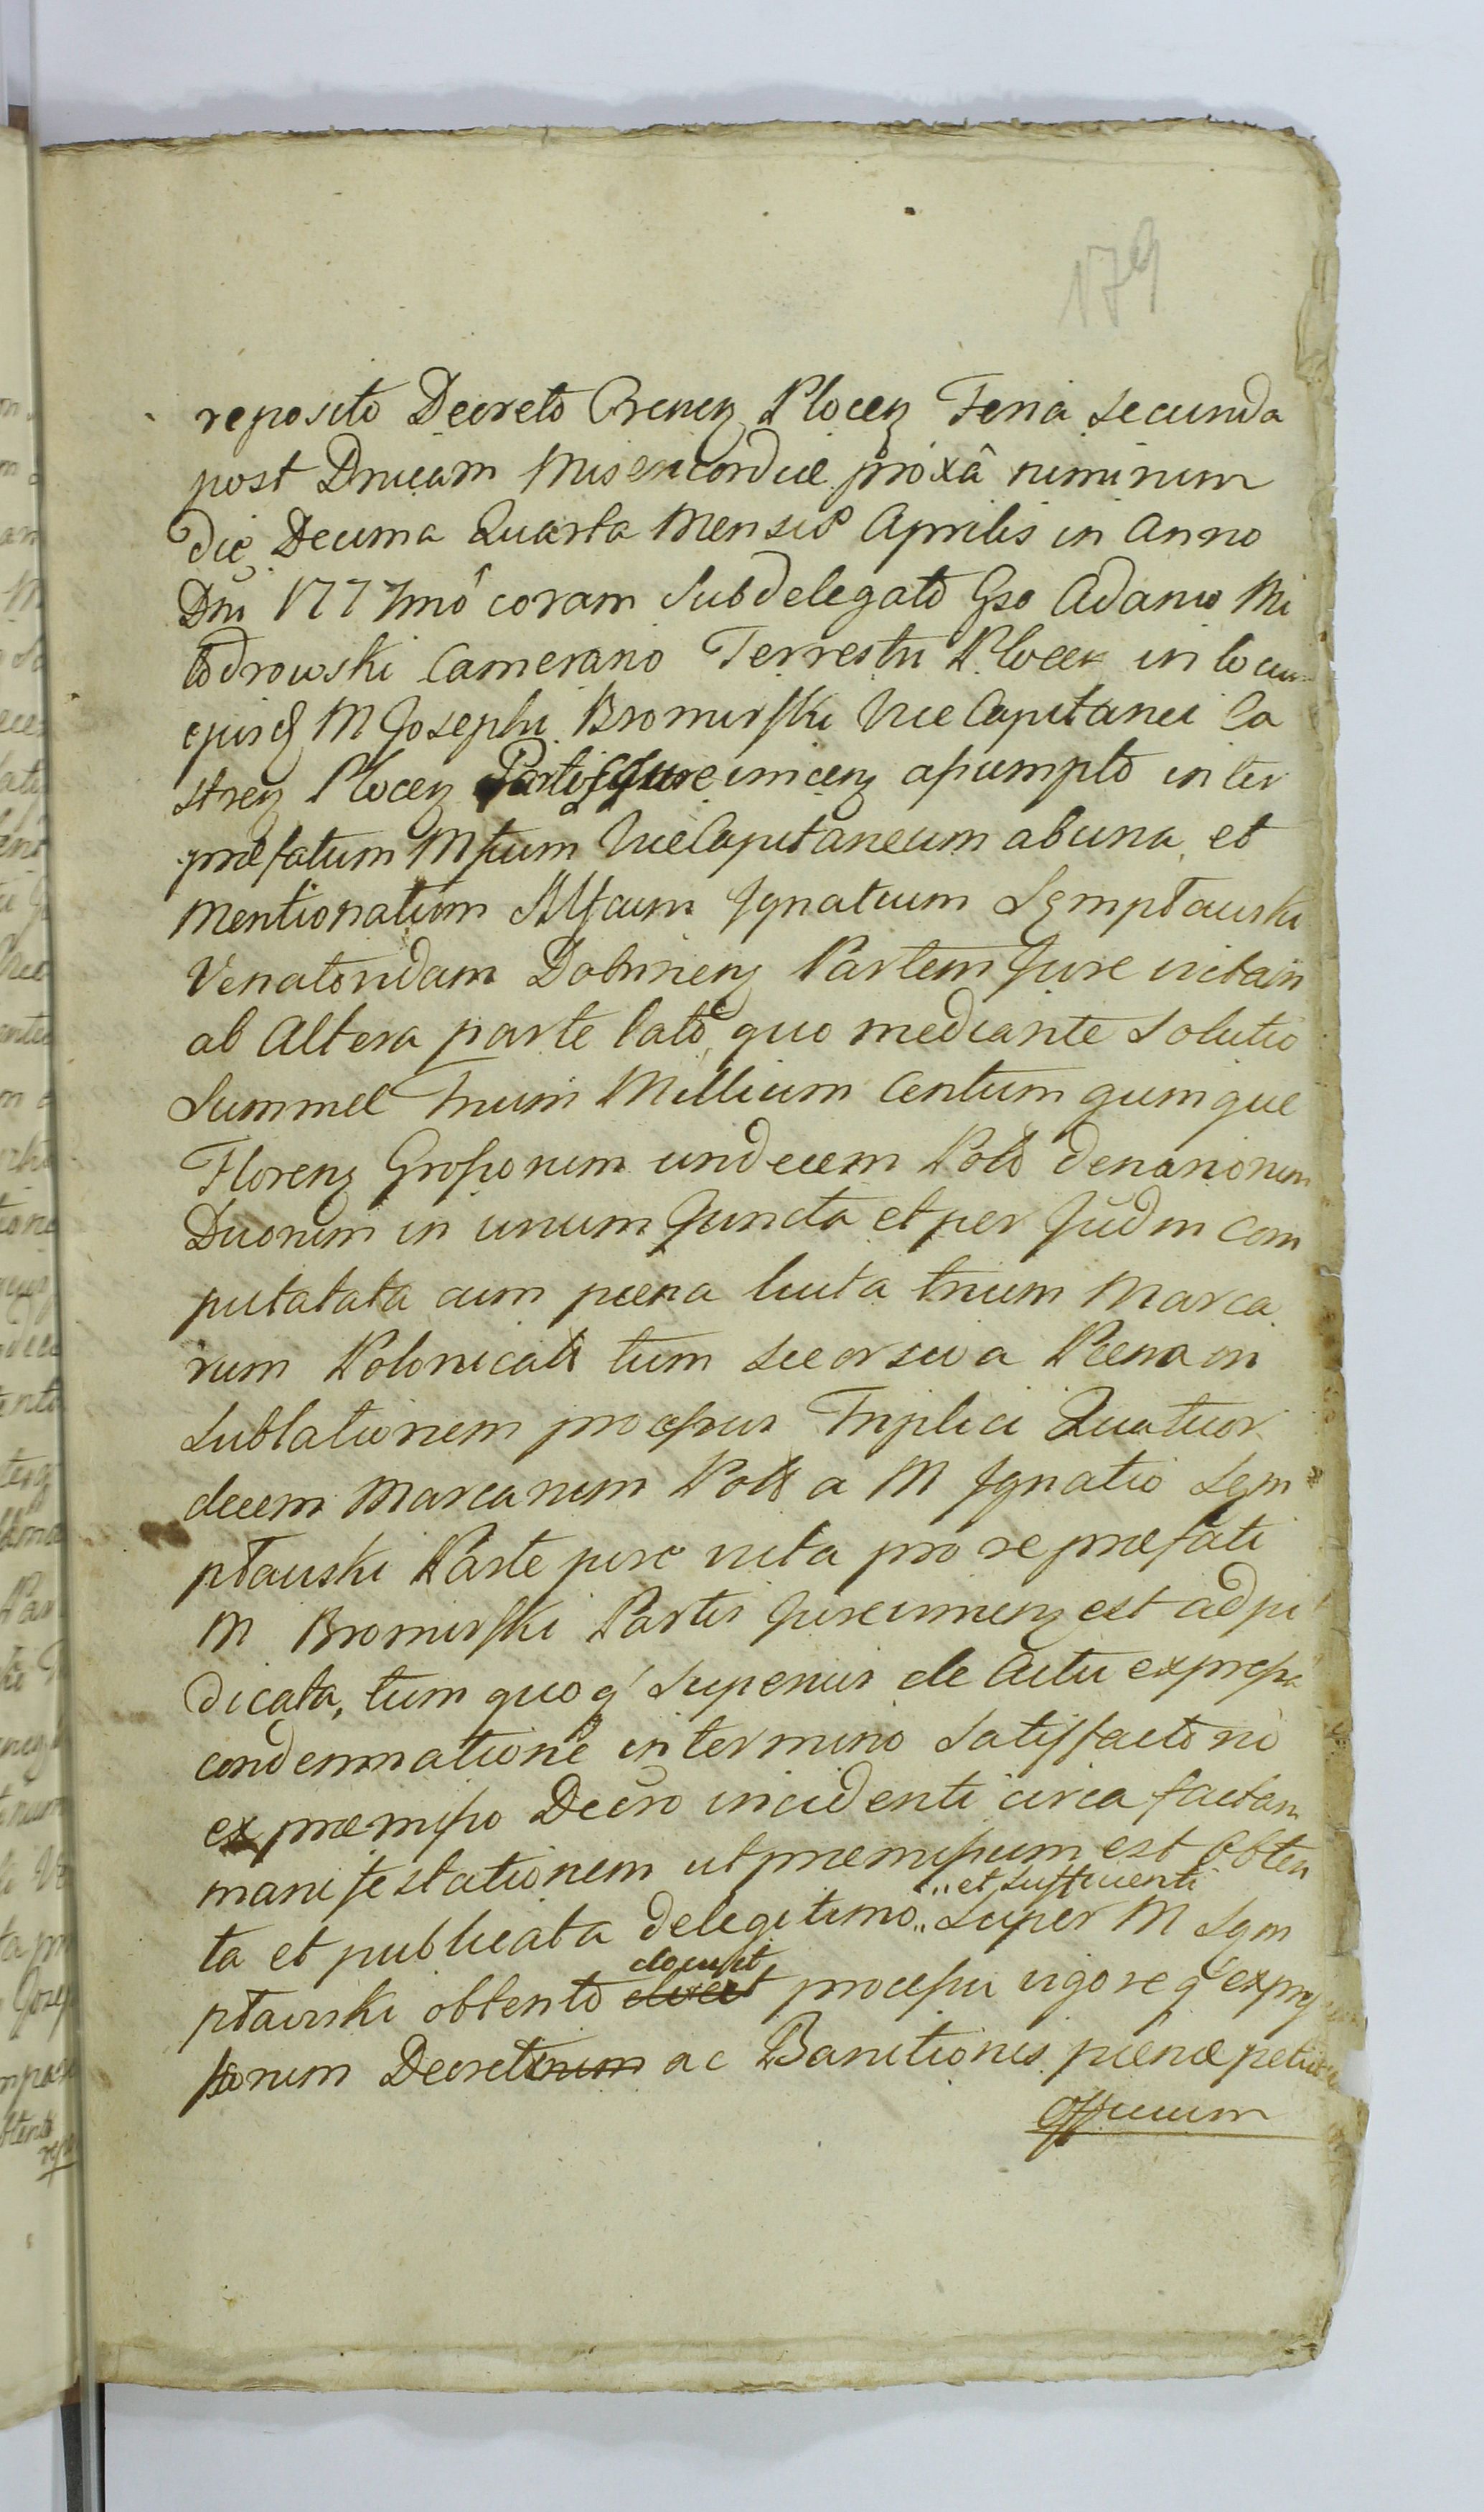 179
reposito Decreto Crenen Plocen Feria secunda
post Dnicam Misericordiæ proxâ nimirum
die Decima Quarta Mensis Aprilis in Anno
Dni 1777mô coram Subdelegato Gso Adamo Mi
todrowski Camerario Terrestri Plocen in locum
ejusd M Josephi Bromirski ViceCapitanei Ca
stren Plocen Partis Jure vincen assumpto inter
præfatum Mfcum ViceCapitaneum ab una et
Mentionatum Mfcum Ignatium Sęmpławski
Venatoridam Dobrinen Partem Jure victam
ab Altera parte lato, quo mediante Solutio
Summæ Trium Millium Centum quinque
Floren Grossorum undecem Pold denariorum
Duorum in unum Juncta et per Judm com
putatata cum pœna luita trium Marca
rum Polonicali tum seorsiva Pœna in
Sublationem processus Triplici Quatuor
decem Marcarum Pold a M Ignatio Sęm
pławski Parte jure victa pro re præfati
M Bromirski Partis Jurevincen est adju
dicata, tum quoq superius de Actu expressa
condemnatione in termino Satisfactorio
ex præmisso Decro incidenti circa factam
manifestationem ut præmissum est obten
ta et publicata de legitimo et sufficienti super M Sęm
pławski obtento docuit processu vigoreq expres
sorum Decreti ac Banitionis pœnæ petiit
Officium